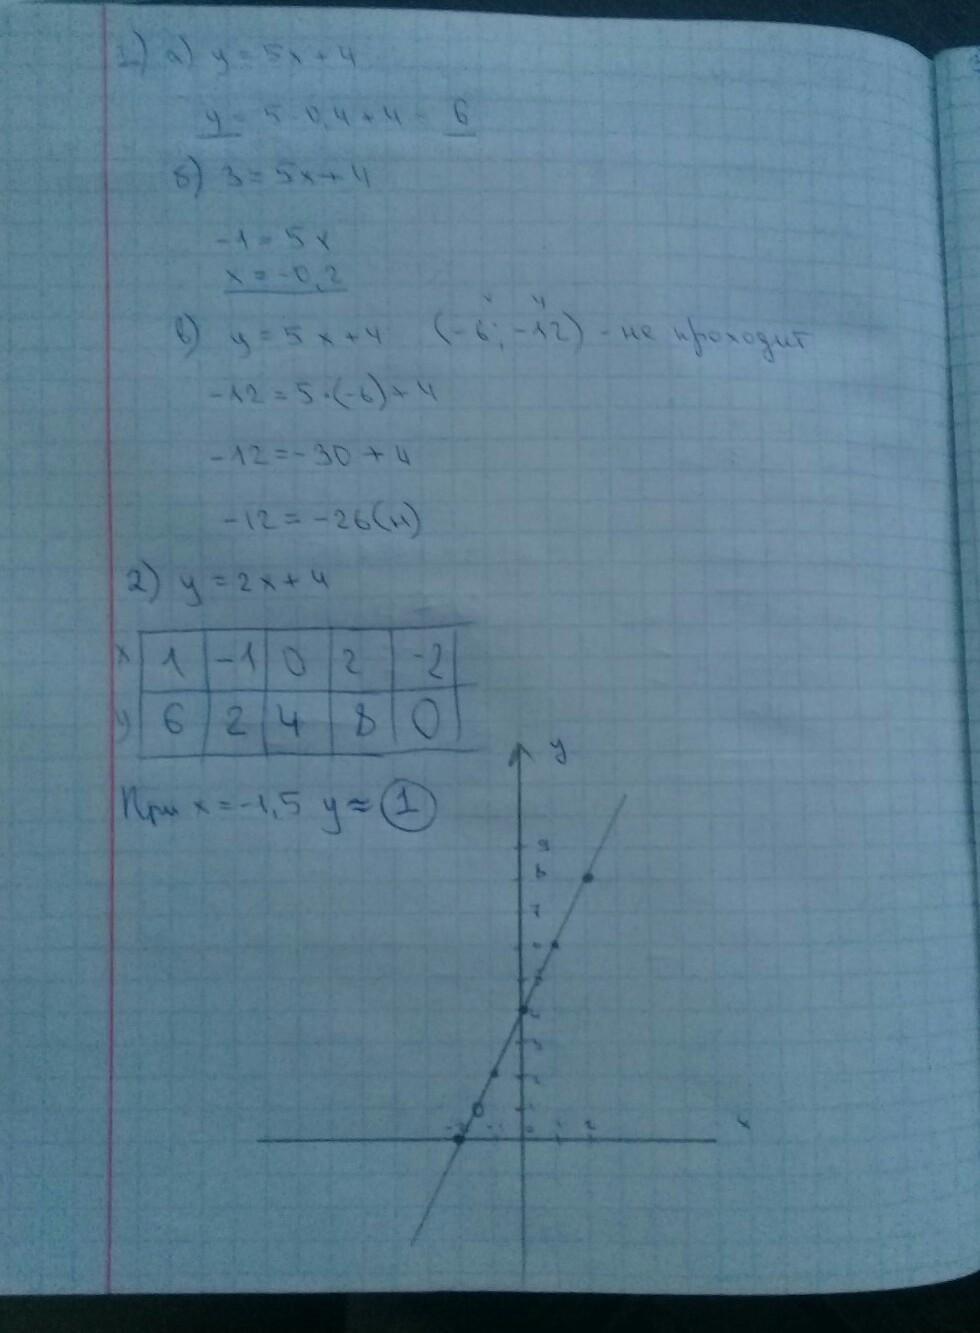 1) а) y = 5x + 4
y = 5·0,4 + 4 = 6
б) 3 = 5x + 4
-1 = 5x
x = -0,2
в) y = 5x + 4 (-6; -12) - не проходит
-12 = 5·(-6) + 4
-12 = -30 + 4
-12 = -26(н)
2) y = 2x + 4
x 1 -1 0 2 -2
y 6 2 4 8 0
При x = -1,5 y ≈ 1
y
9
8
7
x
-2 -1 0 1 2